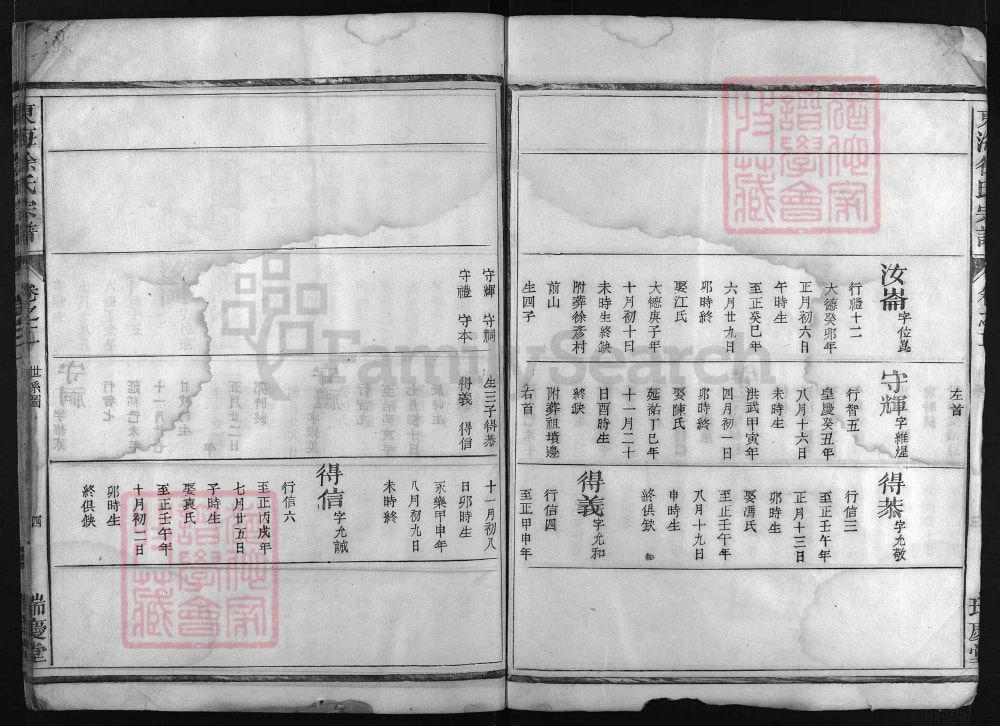 東海徐氏宗譜
瑞慶堂
左首
汝崙字位嵩
行禮十二
大德癸卯年
正月初六日
午時生
至正癸巳年
六月廿九日
卯時終
娶江氏
大德庚子年
十月初十日
未時生終缺
附葬徐彥村
前山
生四子
守輝 守祠
守禮 守本
守輝字維煋
行智五
皇慶癸丑年
八月十六日
未時生
洪武甲寅年
四月初一日
卯時終
娶陳氏
延祐丁巳年
十一月二十
日酉時生
終缺
附葬祖墳邊
右首
生三子得恭
得義 得信
得恭字允敬
行信三
至正壬午年
正月十三日
卯時生
娶馮氏
至正壬午年
八月十九日
申時生
終俱缺
得義字允和
行信四
至正甲申年
十一月初八
日卯時生
永樂甲申年
八月初九日
未時終
得信字允誠
行信六
至正丙戌年
七月廿五日
子時生
娶袁氏
至正壬午年
十月初二日
卯時生
終俱缺
東海徐氏宗譜
卷之二
世系圖
四
瑞慶堂
FamilySearch
譜學會
收藏
譜學會
收藏